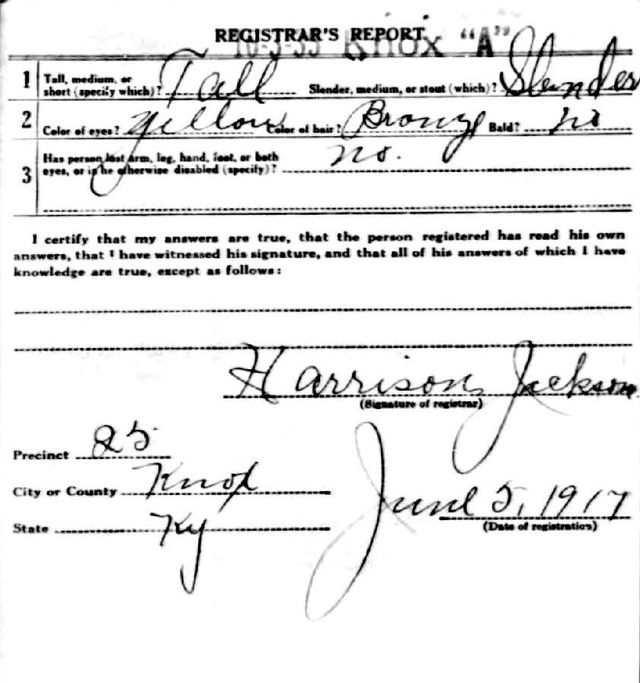 REGISTRAR'S REPORT
10-3-35 Knox "A"
1 Tall, medium, or short (specify which)? Tall Slender, medium, or stout (which)? Slender
2 Color of eyes? Yellow Color of hair? Bronze Bald? no
3 Has person lost arm, leg, hand, foot, or both
eyes, or is he otherwise disabled (specify)? no.
I certify that my answers are true, that the person registered has read his own
answers, that I have witnessed his signature, and that all of his answers of which I have
knowledge are true, except as follows:
Harrison Jackson
(Signature of registrar)
Precinct 25
City or County Knox
State Ky
June 5, 1917
(Date of registration)